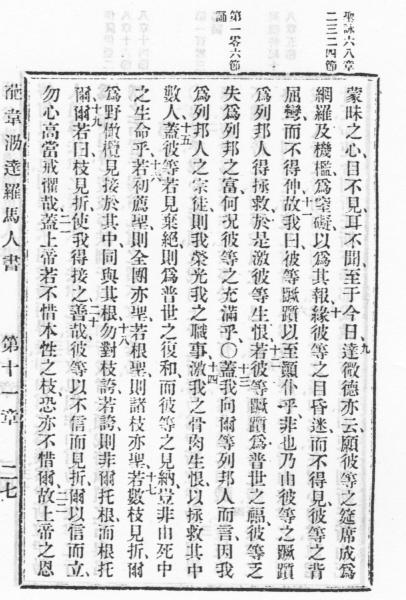 聖詠六八章
二三二四節
第一零六節
誦
蒙昧之心、目不見、耳不聞、至于今日、九達微德亦云、願彼等之筵席成為
網羅及機檻、為窒礙、以為其報、十緣彼等之目昏迷而不得見、彼等之背
屈彎而不得伸、十一故我曰、彼等蹶躓以至顛仆乎、非也、乃由彼等之蹶躓
為列邦人得拯救、於是激彼等生恨、十二若彼等蹶躓為普世之福、彼等乏
失為列邦之富、何況彼等之充滿乎、○十三蓋我向爾等列邦人而言、因我
為列邦人之宗徒、則我榮光我之職事、十四激我之骨肉生恨、以拯救其中
數人、十五蓋彼等若見棄絕、則為普世之復和、而彼等之見納、豈非由死中
之生命乎、十六若初薦聖、則全團亦聖、若根聖、則諸枝亦聖、十七若數枝見折、爾
為野橄欖見接於其中、同與其根、十八勿對枝誇、若誇、則非爾托根、而根托
爾、十九爾若曰、枝見折使我得接之、二十善哉、彼等以不信而見折、爾以信而立、
勿心高、當戒懼哉、二一蓋上帝若不惜本性之枝、恐亦不惜爾、二二故上帝之恩
葩韋泐達羅馬人書 第十一章 二七